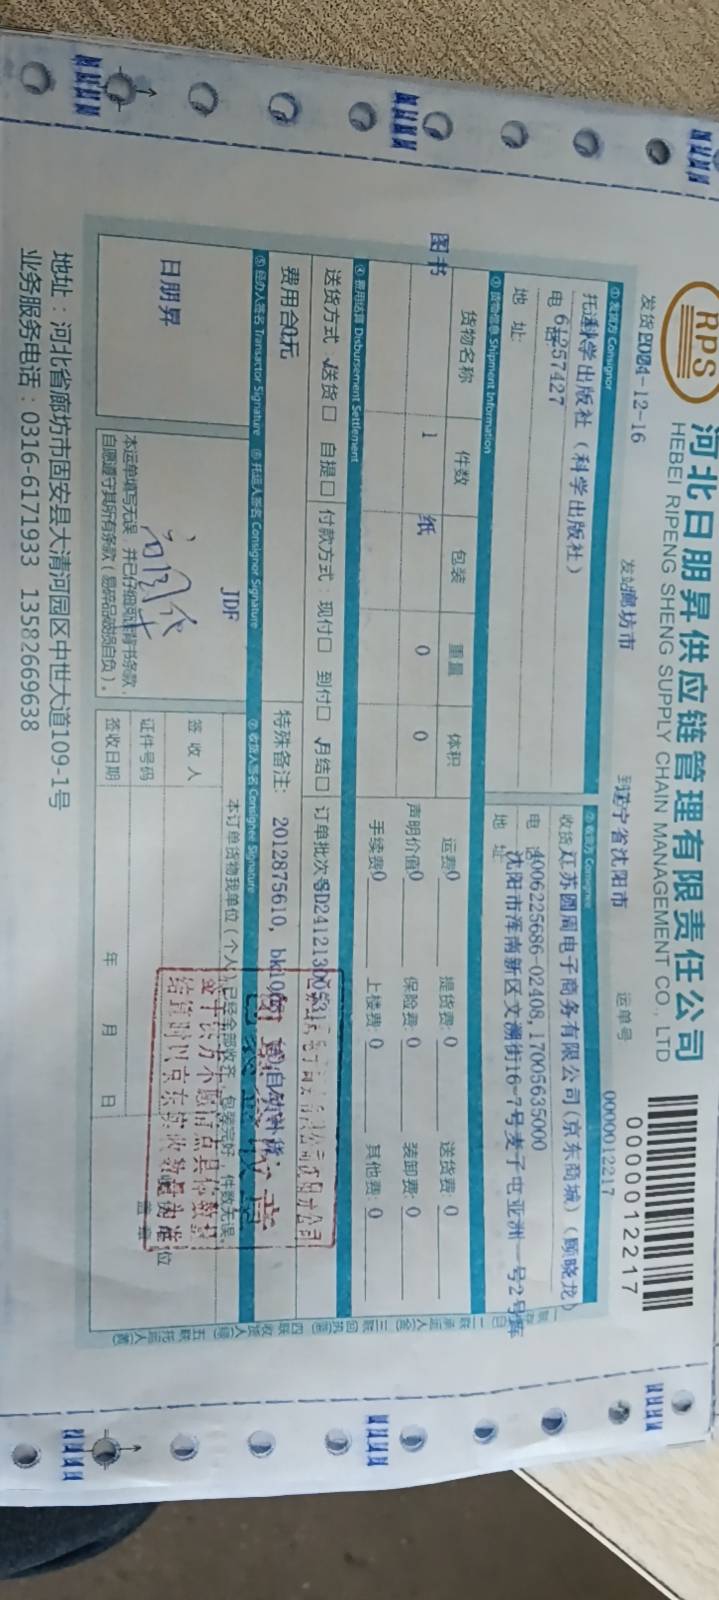 RPS
河北日朋昇供应链管理有限责任公司
HEBEI RIPENG SHENG SUPPLY CHAIN MANAGEMENT CO., LTD
0000012217
发货 2024-12-16
发站 廊坊市
到 辽宁省沈阳市
运单号 0000012217
① 发货方 Consignor
② 收货方 Consignee
科学出版社（科学出版社）
收货 江苏圆周电子商务有限公司(京东商城)（顾晓龙）
电 61257427
电 4006225686-02408,17005635000
地 址:
地 址 沈阳市浑南新区文溯街16-7号麦子屯亚洲一号2号库
③ 货物信息 Shipment Information
货物名称 件数 包装 重量 体积
图书 1 纸 0 0
运费 0 提货费: 0 送货费: 0
声明价值 0 保险费: 0 装卸费: 0
手续费 0 上楼费: 0 其他费: 0
④ 费用结算 Disbursement Settlement
送货方式 送货□ 自提□ 付款方式: 现付□ 到付□ 月结□ 订单批次号
费用合 0元
特殊备注: 2012875610,
自动补货;
⑤ 经办人签名 Transactor Signature ⑥ 托运人签名 Consignor Signature ⑦ 收货人签名 Consignee Signature
日朋昇
JDF
本运单填写无误，并已仔细阅读背书条款，
自愿遵守其所有条款（易碎品破损自负）。
本订单货物我单位（个人）已经全部收齐，包装完好，件数无误。
签 收 人
证件号码
签收日期 年 月 日
盖 章
地址：河北省廊坊市固安县大清河园区中世大道109-1号
业务服务电话：0316-6171933 13582669638